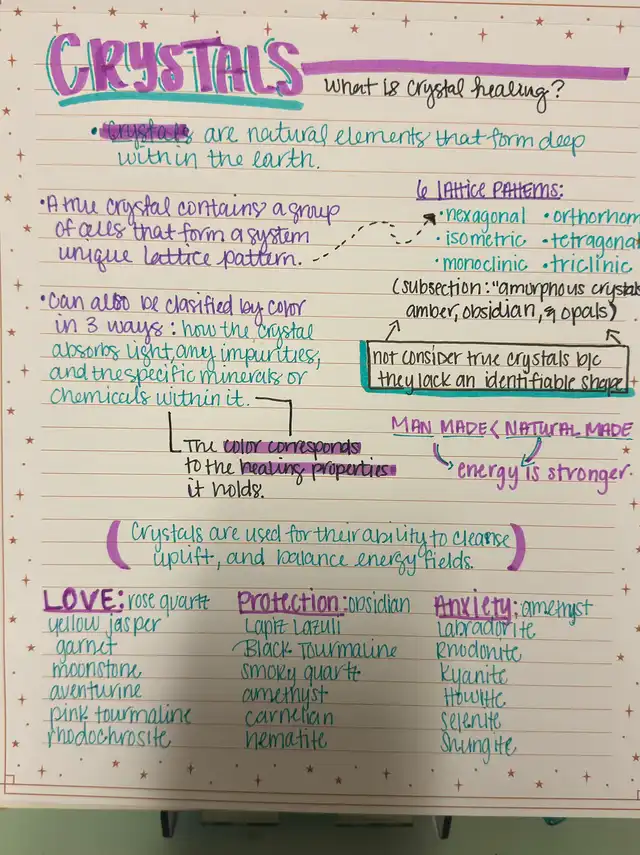 CRYSTALS
What is crystal healing?
• Crystals are natural elements that form deep
within the earth.
• A true crystal contains a group
of cells that form a system
unique lattice pattern.
6 lattice patterns:
• hexagonal • orthorhom
• isometric • tetragonal
• monoclinic • triclinic
(subsection: "amorphous crystals
amber, obsidian, & opals)
not consider true crystals b/c
they lack an identifiable shape
• Can also be clasified by color
in 3 ways: how the crystal
absorbs light, any impurities,
and the specific minerals or
chemicals within it.
The color corresponds
to the healing properties
it holds.
MAN MADE < NATURAL MADE
energy is stronger.
(Crystals are used for their ability to cleanse
uplift, and balance energy fields.)
LOVE: rose quartz
yellow jasper
garnet
moonstone
aventurine
pink tourmaline
rhodochrosite
Protection: obsidian
Lapiz Lazuli
Black Tourmaline
smoky quartz
amethyst
carnelian
hematite
Anxiety: amethyst
Labradorite
Rhodonite
Kyanite
Howlite
Selenite
Shungite